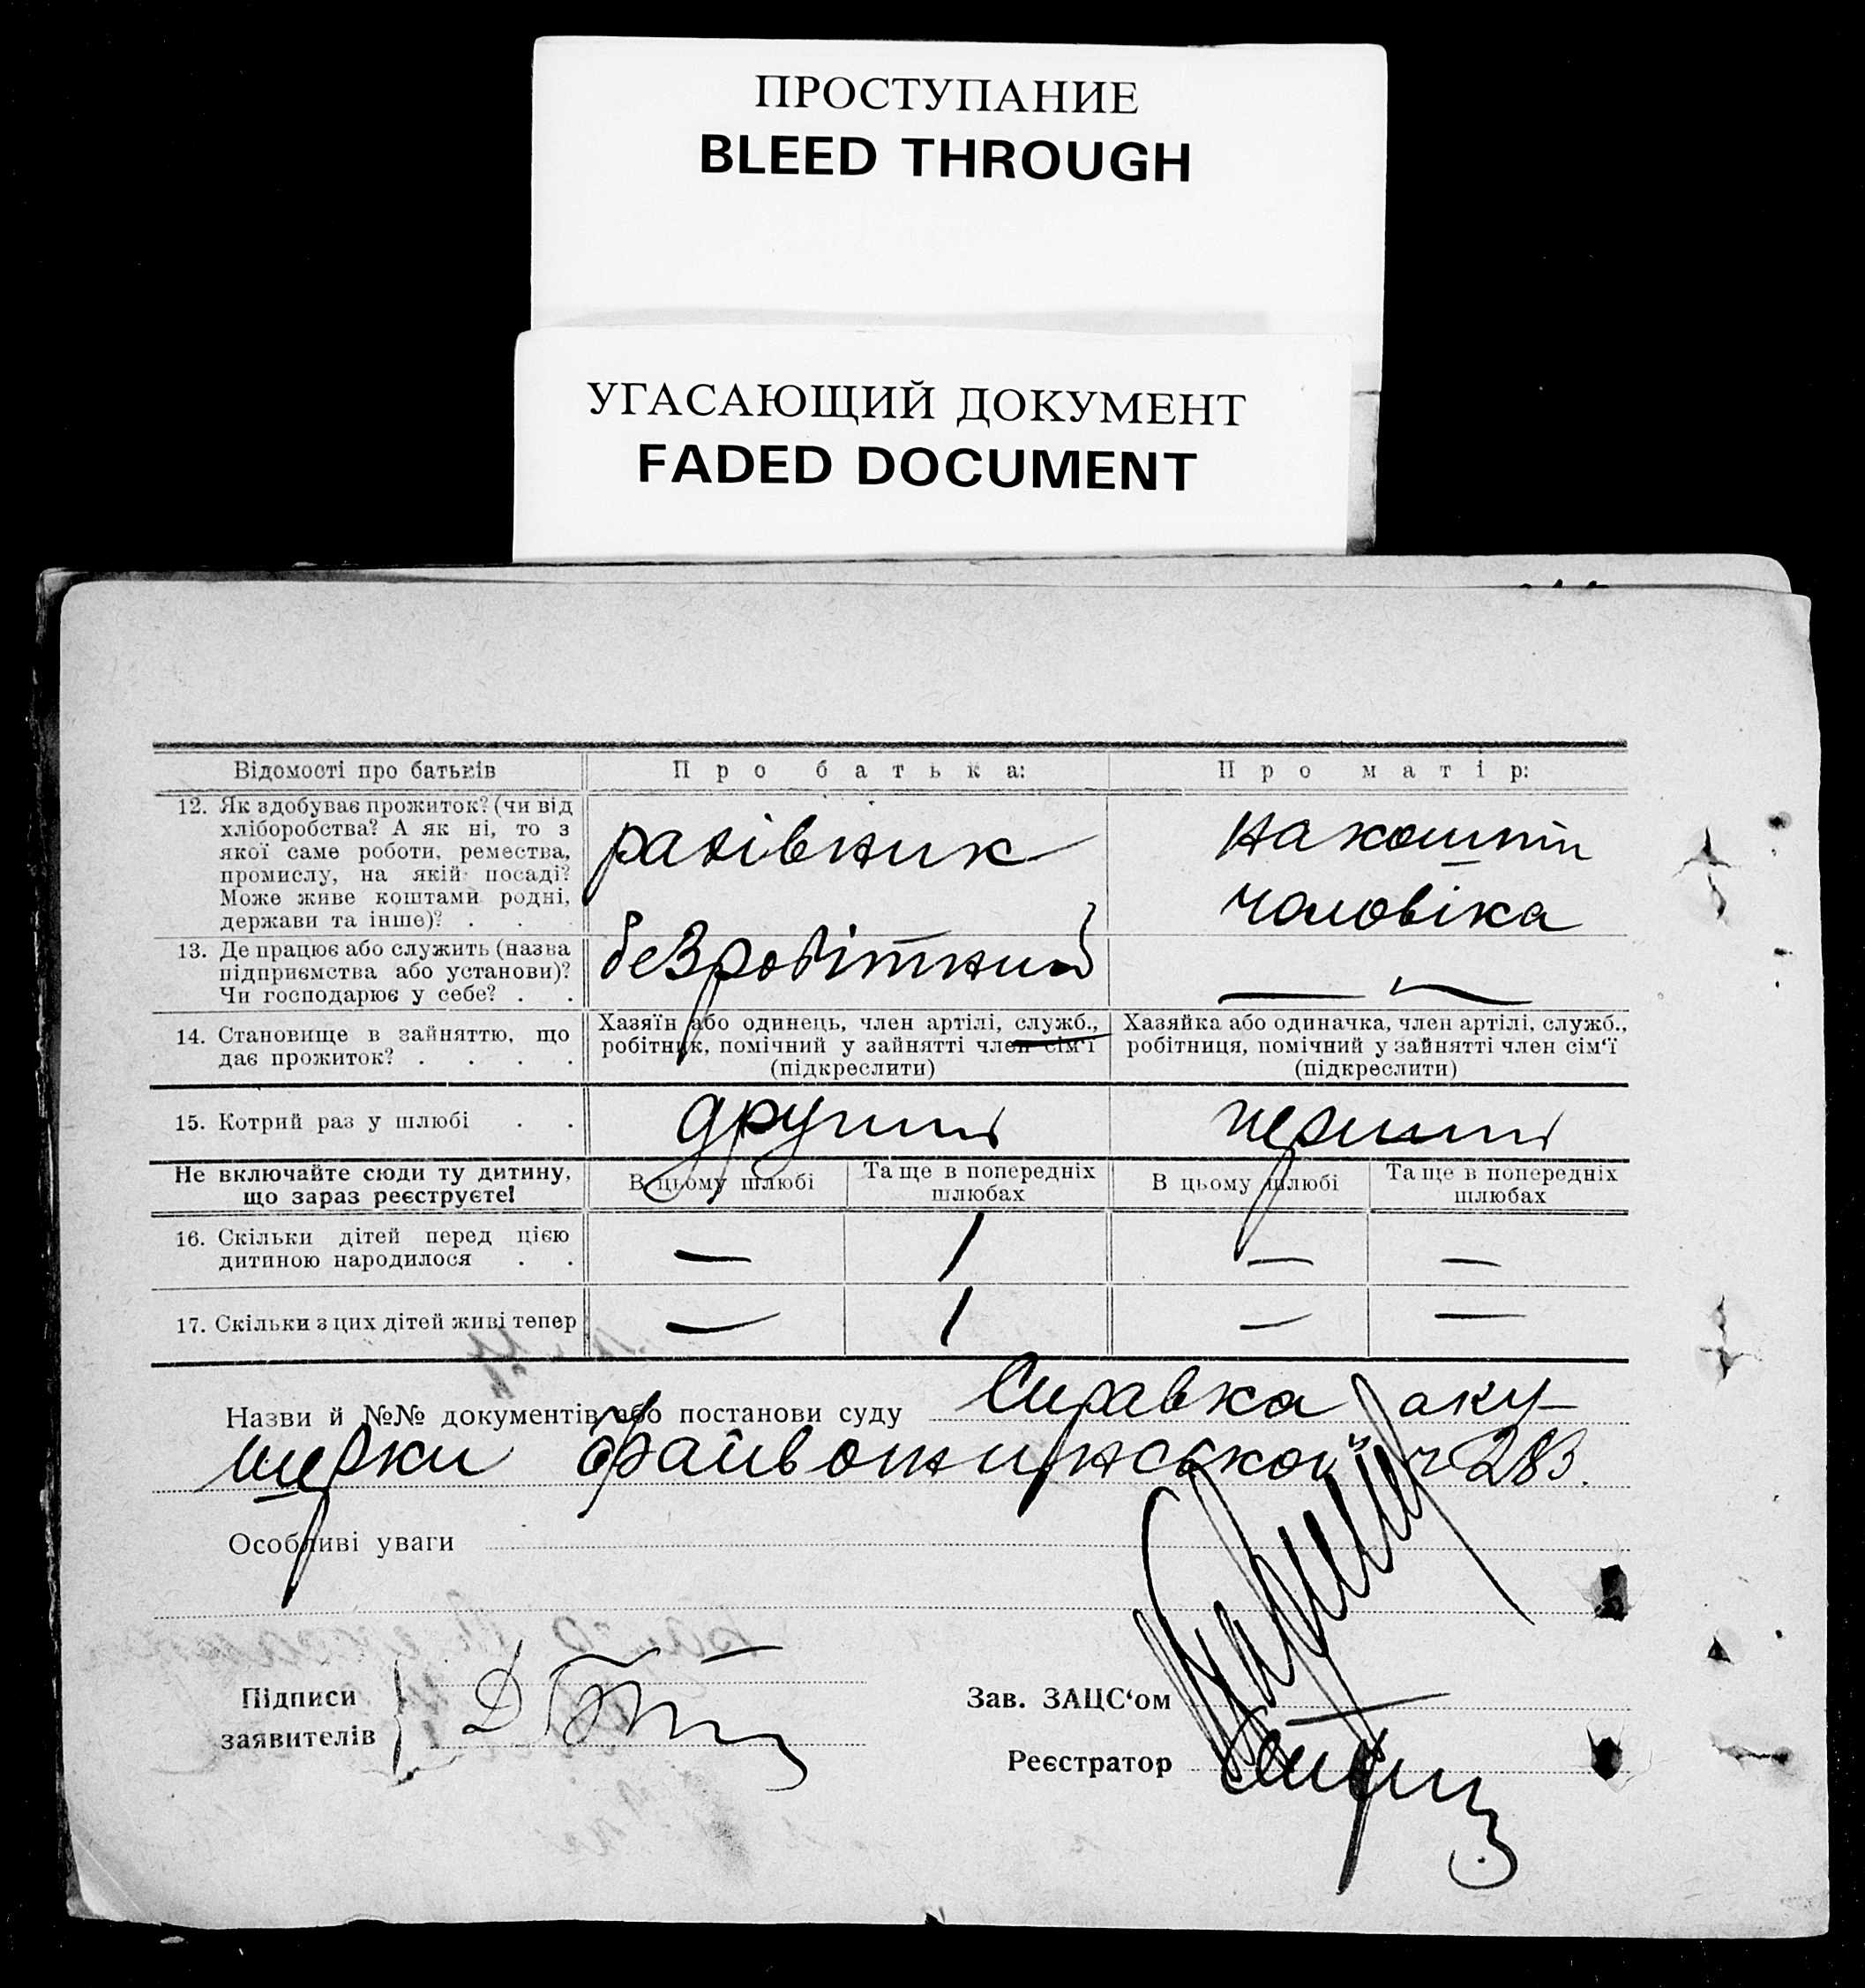 ПРОСТУПАНИЕ
BLEED THROUGH
УГАСАЮЩИЙ ДОКУМЕНТ
FADED DOCUMENT
Відомості про батьків
Про батька:
Про матір:
12. Як здобуває прожиток? (чи від
хліборобства? А як ні, то з
якої саме роботи, ремества,
промислу, на якій посаді?
Може живе коштами родні,
держави та інше)? . .
рахівник
на кошти
чоловіка
13. Де працює або служить (назва
підприємства або установи)?
Чи господарює у себе? . .
безробітний
—
14. Становище в зайняттю, що
дає прожиток? . . . .
Хазяїн або одинець, член артілі, служб.,
робітник, помічний у зайнятті член сім'ї
(підкреслити)
Хазяйка або одиначка, член артілі, служб.,
робітниця, помічний у зайнятті член сім'ї
(підкреслити)
15. Котрий раз у шлюбі . .
другий
перший
Не включайте сюди ту дитину,
що зараз реєструєте!
В цьому шлюбі
Та ще в попередніх
шлюбах
В цьому шлюбі
Та ще в попередніх
шлюбах
16. Скільки дітей перед цією
дитиною народилося . .
— 1 — —
17. Скільки з цих дітей живі тепер
— 1 — —
Назви й №№ документів або постанови суду Справка аку-
шерки ч 283.
Особливі уваги
Підписи
заявителів
Зав. ЗАЦС‘ом
Реєстратор